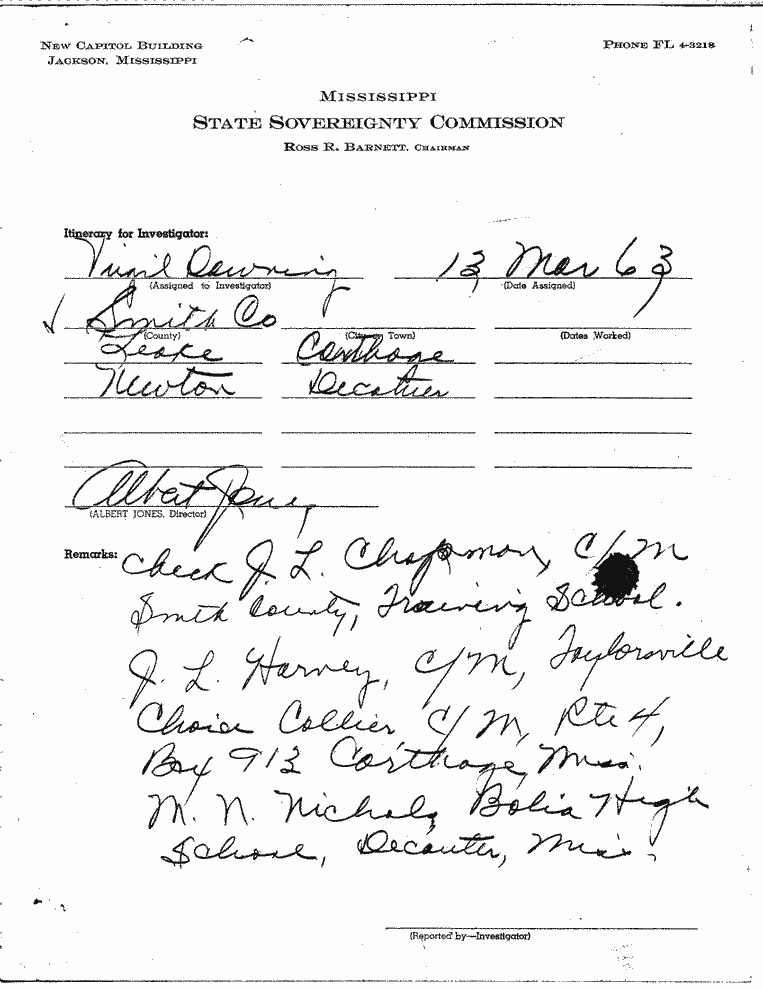 NEW CAPITOL BUILDING
JACKSON, MISSISSIPPI
PHONE FL 4-3218
MISSISSIPPI
STATE SOVEREIGNTY COMMISSION
ROSS R. BARNETT, CHAIRMAN
Itinerary for Investigator:
Virgil Downing 13 Mar 63
(Assigned to Investigator) (Date Assigned)
✓ Smith Co
(County) (City or Town) (Dates Worked)
Leake Carthage
Newton Decatur
Albert Jones
(ALBERT JONES, Director)
Remarks: Check J. L. Chapman, C/M
Smith County, Training School.
J. L. Harvey, C/M, Taylorsville
Choice Collier C/M, Rte 4,
Box 913 Carthage, Miss.
M. N. Nichols, High
School, Miss.
(Reported by—Investigator)